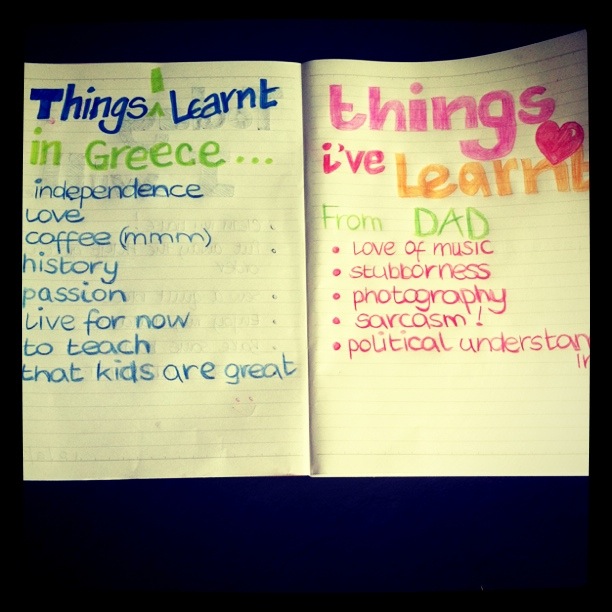 Things I Learnt
in Greece...
independence
love
coffee (mmm)
history
passion
live for now
to teach
that kids are great
things
i've Learnt
From DAD
• Love of music
• stubborness
• photography
• sarcasm!
• political understan